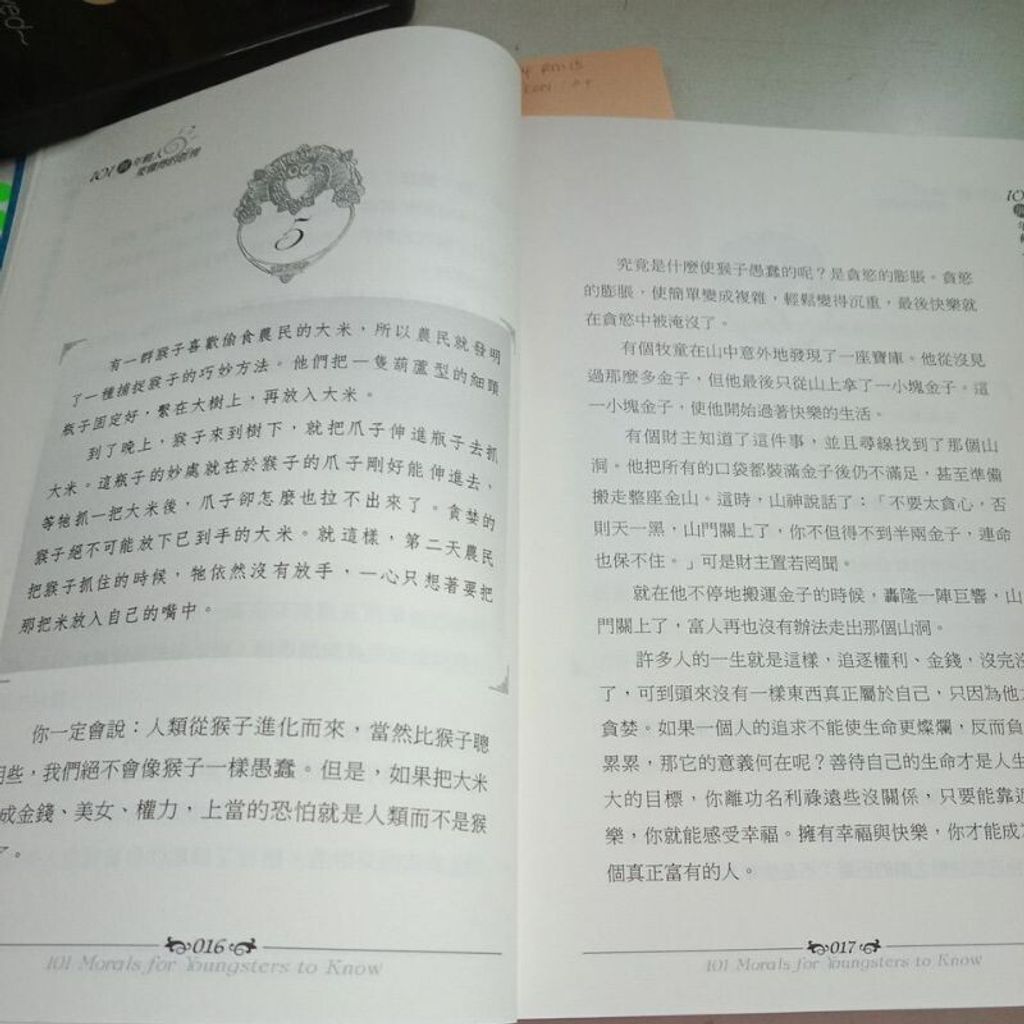 101個年輕人
要懂得的哲理
5
有一群猴子喜歡偷食農民的大米，所以農民就發明
了一種捕捉猴子的巧妙方法。他們把一隻葫蘆型的細頸
瓶子固定好，繫在大樹上，再放入大米。
到了晚上，猴子來到樹下，就把爪子伸進瓶子去抓
大米。這瓶子的妙處就在於猴子的爪子剛好能伸進去，
等牠抓一把大米後，爪子卻怎麼也拉不出來了。貪婪的
猴子絕不可能放下已到手的大米。就這樣，第二天農民
把猴子抓住的時候，牠依然沒有放手，一心只想著要把
那把米放入自己的嘴中。
你一定會說：人類從猴子進化而來，當然比猴子聰
明些，我們絕不會像猴子一樣愚蠢。但是，如果把大米
成金錢、美女、權力，上當的恐怕就是人類而不是猴
了。
016
101 Morals for Youngsters to Know
10
究竟是什麼使猴子愚蠢的呢？是貪慾的膨脹。貪慾
的膨脹，使簡單變成複雜，輕鬆變得沉重，最後快樂就
在貪慾中被淹沒了。
有個牧童在山中意外地發現了一座寶庫。他從沒見
過那麼多金子，但他最後只從山上拿了一小塊金子。這
一小塊金子，使他開始過著快樂的生活。
有個財主知道了這件事，並且尋線找到了那個山
洞。他把所有的口袋都裝滿金子後仍不滿足，甚至準備
搬走整座金山。這時，山神說話了：「不要太貪心，否
則天一黑，山門關上了，你不但得不到半兩金子，連命
也保不住。」可是財主置若罔聞。
就在他不停地搬運金子的時候，轟隆一陣巨響，山
門關上了，富人再也沒有辦法走出那個山洞。
許多人的一生就是這樣，追逐權利、金錢，沒完沒
了，可到頭來沒有一樣東西真正屬於自己，只因為他
貪婪。如果一個人的追求不能使生命更燦爛，反而負
累累，那它的意義何在呢？善待自己的生命才是人生
大的目標，你離功名利祿遠些沒關係，只要能靠近
樂，你就能感受幸福。擁有幸福與快樂，你才能成
個真正富有的人。
017
101 Morals for Youngsters to Know